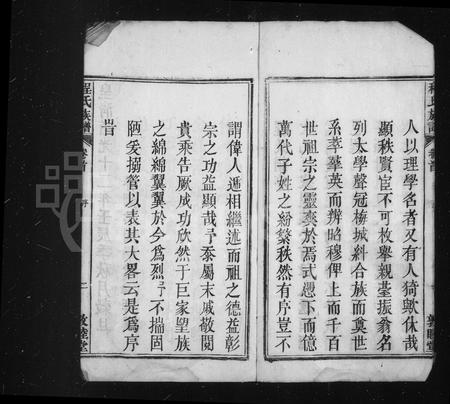 程氏族譜 卷首 敦睦堂
人以理學名者又有人猗歟休哉
顯秩賢宦不可枚舉親臺振翁名
列太學聲冠梅城糾合族而奠世
系萃華英而辨昭穆俾上而千百
世祖宗之靈奕於焉式慿下而億
萬代子姓之紛繁秩然有序豈不
謂偉人遞相繼述而祖之德益彰
宗之功益顯哉予忝屬末戚敬閱
貴乘告厥成功欣然于巨家望族
之綿綿翼翼於今為烈予不揣固
陋爰搦管以表其大畧云是為序
旹
程氏族譜 卷首 序 二 敦睦堂